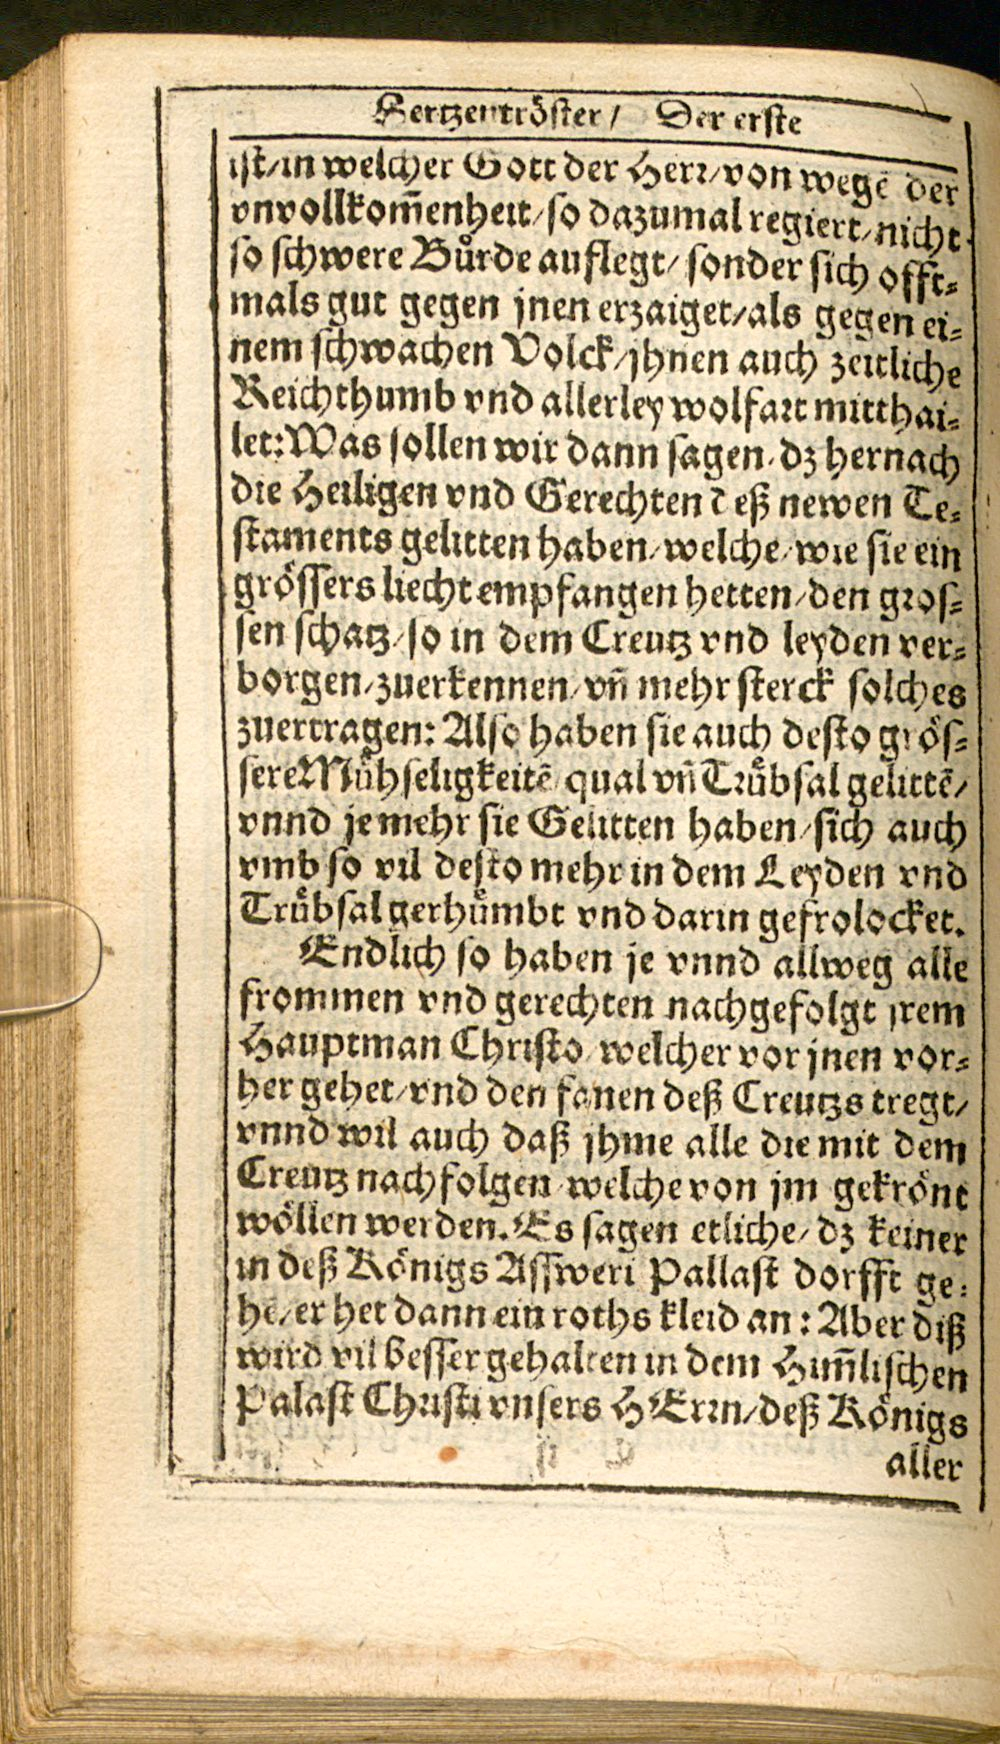 Hertzentröster / Der erste
ist/in welcher Gott der Herr/von wegē der
vnvollkom̄enheit/so dazumal regiert/nicht
so schwere Bůrde auflegt/sonder sich offt-
mals gut gegen jnen erzaiget/als gegen ei-
nem schwachen Volck/jhnen auch zeitliche
Reichthumb vnd allerley wolfart mitthai-
let: Was sollen wir dann sagen/dz hernach
die Heiligen vnd Gerechten deß newen Te-
staments gelitten haben/welche/wie sie ein
grössers liecht empfangen hetten/den gros-
sen schatz/so in dem Creutz vnd leyden ver-
borgen/zuerkennen/vn̄ mehr sterck solches
zuertragen: Also haben sie auch desto grös-
sere Můhseligkeitē/qual vn̄ Trůbsal gelittē/
vnnd je mehr sie Gelitten haben/sich auch
vmb so vil desto mehr in dem Leyden vnd
Trůbsal gerhůmbt vnd darin gefrolocket.
Endlich so haben je vnnd allweg alle
frommen vnd gerechten nachgefolgt jrem
Hauptman Christo/welcher vor jnen vor-
her gehet/vnd den fanen deß Creutzs tregt/
vnnd wil auch daß jhme alle die mit dem
Creutz nachfolgen/welche von jm gekrönt
wöllen werden. Es sagen etliche/dz keiner
in deß Königs Assweri Pallast dorfft ge-
hē/er het dann ein roths kleid an: Aber diß
wird vil besser gehalten in dem Him̄lischen
Palast Christi vnsers HErrn/deß Königs
aller